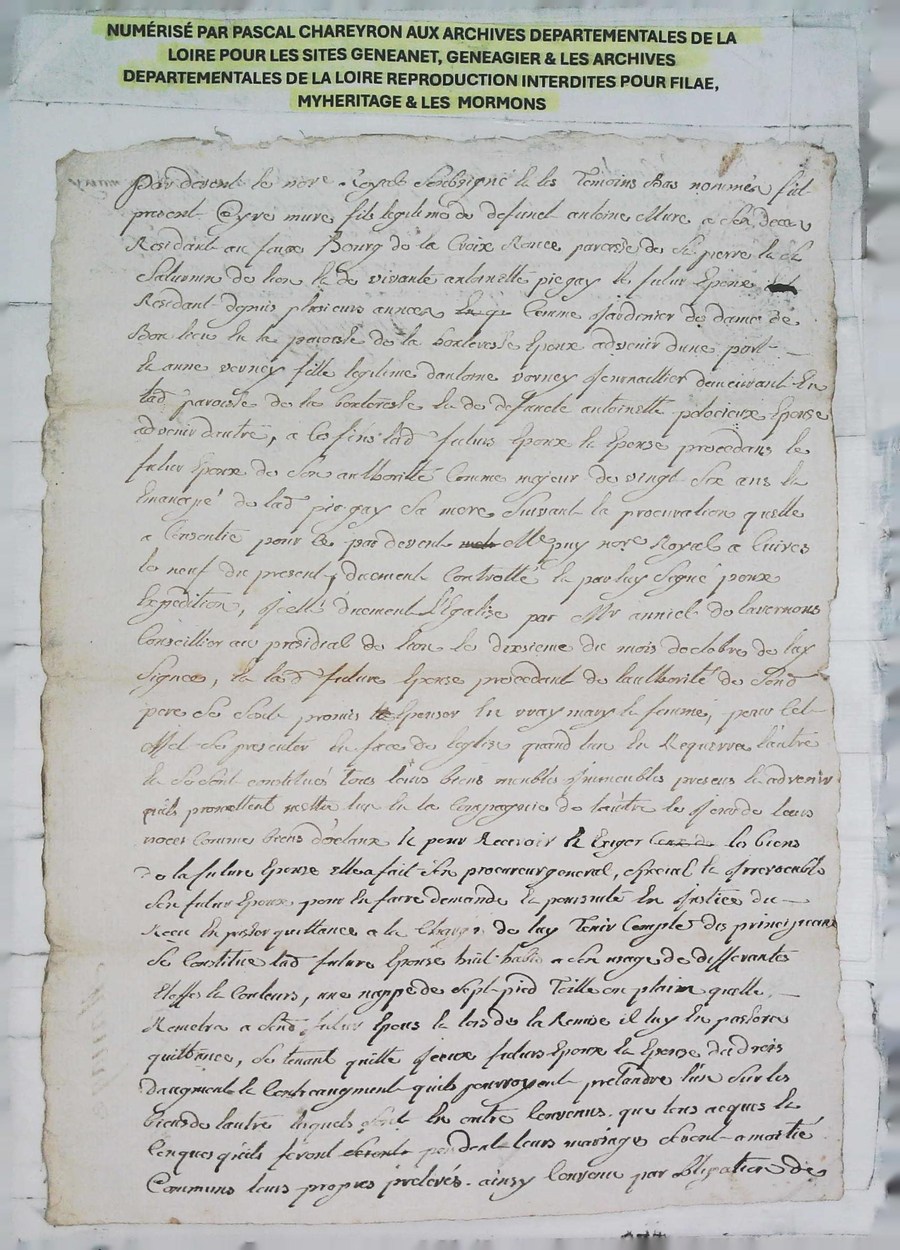 NUMÉRISÉ PAR PASCAL CHAREYRON AUX ARCHIVES DEPARTEMENTALES DE LA
LOIRE POUR LES SITES GENEANET, GENEAGIER & LES ARCHIVES
DEPARTEMENTALES DE LA LOIRE REPRODUCTION INTERDITES POUR FILAE,
MYHERITAGE & LES MORMONS
Par devent le nore Royal Soubsigné & les Temoins Bas nommés fut
present mure fils legitime de defunct antoine Mure
Residant au Bourg de la Croix Rouce paroisse de St pierre & St
Saturnin de lion & de vivante antoinette piegay le futur Epoux
Resident depuis plusieurs années Comme Jardenier de dame de
Bon lieu en la paroisse de la Epoux advenir dune part
Et anne verney fille legitime dantoine verney Journallier demeurant En
lad paroisse de la & de defuncte antoinette Epouse
advenir dautre, a Ces fins lad futurs Epoux & Epouse procedans le
futur Epoux de Son authorité Comme majeur de vingt Six ans &
Emancipé de lad piegay Sa mere Suivant la procuration quelle
a Consentie pour Ce par devent Me puy nore Royal a
le neuf du present, duement Controllé & par luy Signé pour
Expedition, Jcelle duement Legalise par Mr anniel de
Conseillier au presidial de lion le dixsieme du mois doctobre de luy
Signée, & lad future Epouse procedant de lauthorité de Sond
pere Se Sont promis Epouser En vray mary & femme, pour Cet
Effet Se presenter En face de leglise quand lun En Requerra lautre
& Se Sont constitués tous leurs biens meubles Jmmeubles presens & advenir
quils promettent mettre lun En la Compagnie de lautre le Jour de leurs
noces Comme biens & pour Recevoir & Exiger les biens
de la future Epouse elle a fait Son procureur general, Special & Jrrevocable
Son futur Epoux pour En faire demande & poursuite En Justice du
Recu En passer quittance a la de luy Tenir Compte des principeaux
Se Constitue lad future Epouse huit habis a Son usage de differantes
Etoffes & Couleurs, une nappe de Sept pied Toille en plain quelle
Remetra a Sond futur Epous & lors de la Remise il luy En passera
quittance, Se tenant quitte Jceux futurs Epoux & Epouse du drois
daugment & Contreaugment quils pourroyent pretandre lun Sur les
biens de lautre En outre Convenus que tous acques &
Conques quils feront pendent leurs mariage Seront a moitié
Communs leurs propres prelevés. ainsy Convenu par obligation de